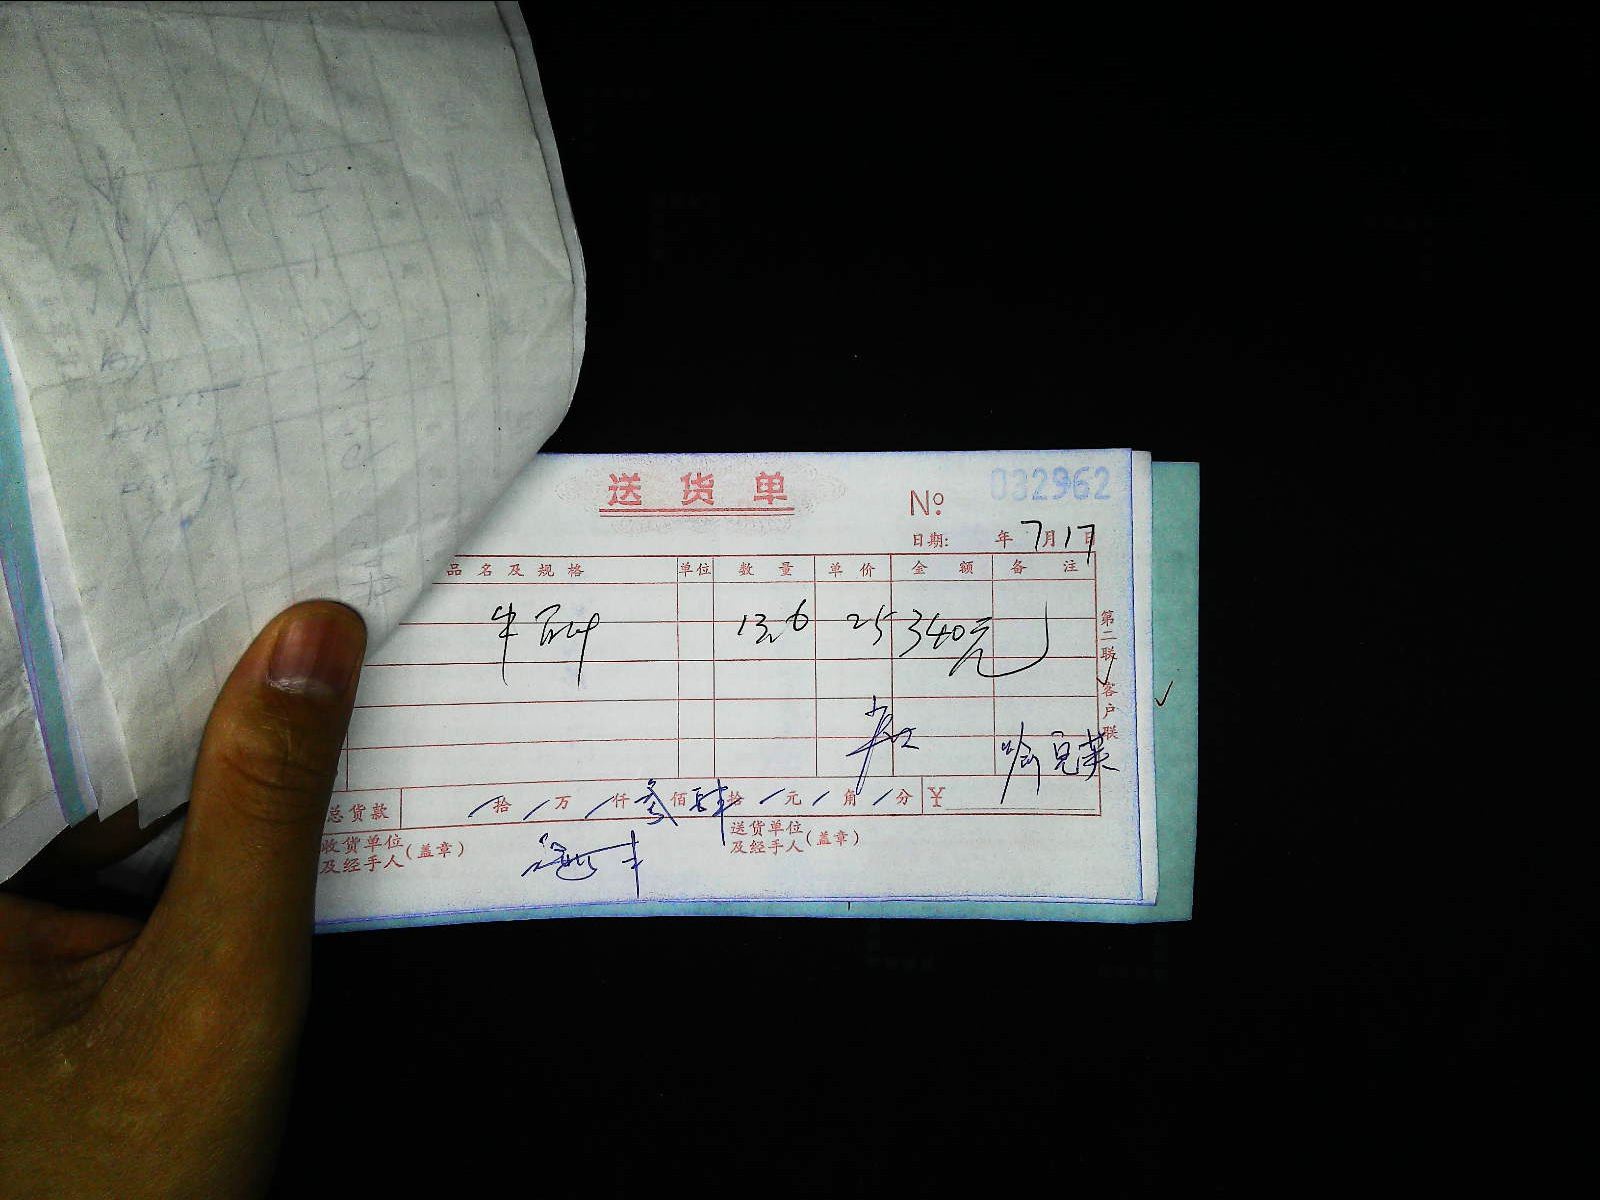 送货单
№ 032962
日期: 年7月17日
品名及规格 单位 数量 单价 金额 备注
牛百叶 13.6 25 340元
第二联 客户联
总货款 拾 万 仟叁佰肆拾 元 角 分 ¥
收货单位及经手人(盖章) 送货单位及经手人(盖章)